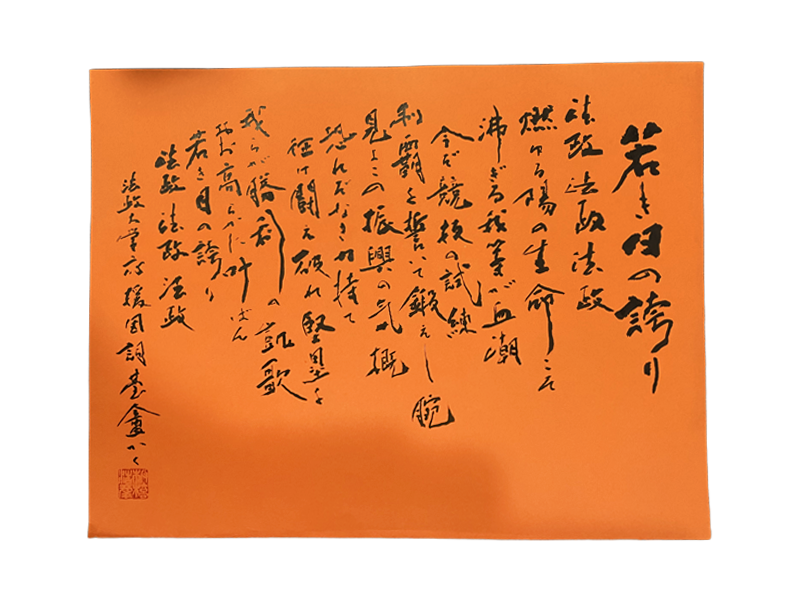 若き日の誇り
法政 法政 法政
燃ゆる陽の生命こそ
沸ぎる我等が血潮
今ぞ競技の試練
制覇を誓いて鍛えし腕
見よこの振興の気概
恐れぞなき力持て
征け闘え破れ堅塁を
我らが勝利の凱歌
なお高らかに叫ばん
若き日の誇り
法政 法政 法政
法政大学応援団 詞 臺 かく